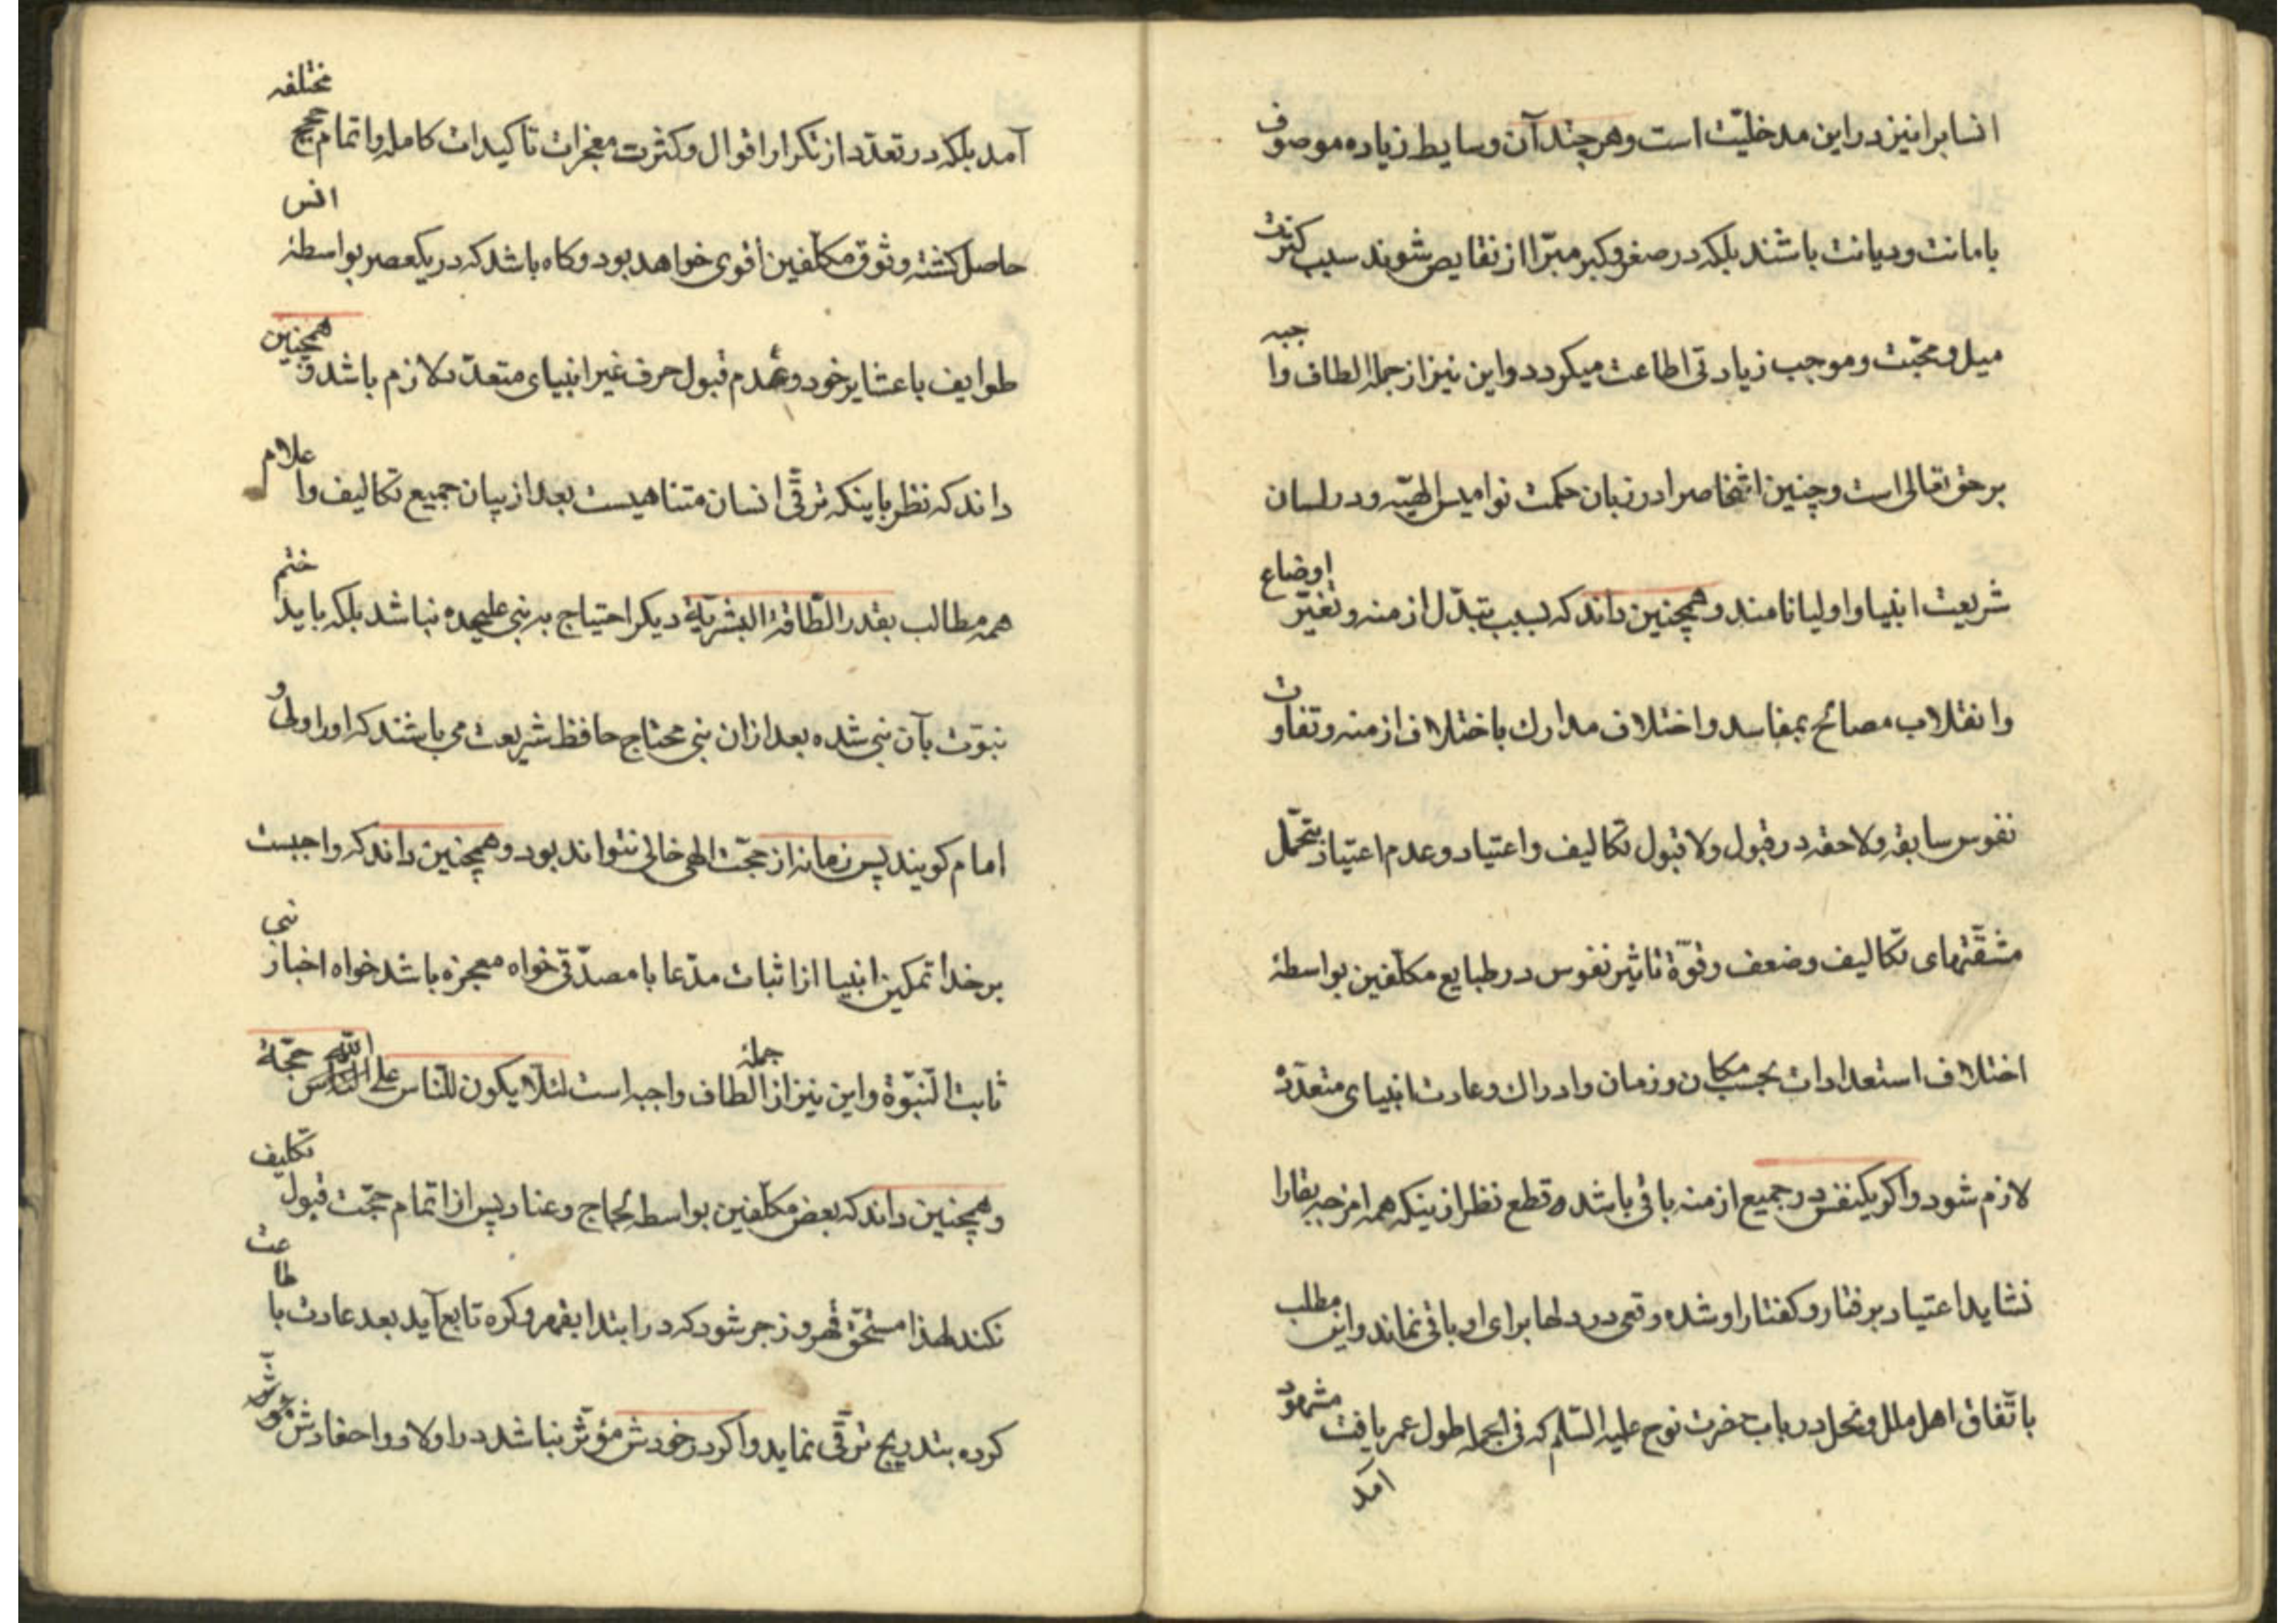 انسابرا نیز در این مدخلیّت است وهر چند آن وسایط زیاده موصوف
بامانت ودیانت باشند بلکه در صغر وکبر مبرّا از نقایص شوند سبب کثرت
میل ومحبّت وموجب زیادتی اطاعت میکردد واین نیز از جمله الطاف واجبه
بر حق تعالی است وچنین اشخاصرا در زبان حکمت نوامیس الهیّه ودر لسان
شریعت انبیا واولیا نامند وهمچنین داند که بسبب تبدّل ازمنه وتغیّر اوضاع
وانقلاب مصالح بمفاسد واختلاف مدارك باختلاف ازمنه وتفاوت
نفوس سابقه ولاحقه در قبول ولا قبول تکالیف واعتیاد وعدم اعتیاد بتحمّل
مشقّتهای تکالیف وضعف وقوّة تاثیر نفوس در طبایع مکلّفین بواسطهٔ
اختلاف استعدادات بحسب مکان وزمان وادراك وعادت انبیای متعدّده
لازم شود واکر یکنفس در جمیع ازمنه باقی باشد قطع نظر از ینکه همه امزجه بقارا
نشاید اعتیاد برفتار وکفتار او شده وقعی در دلها برای او باقی نماند واین مطلب
باتّفاق اهل ملل ونحل در باب حضرت نوح علیه السّلم که فی الجمله طول عمر یافت مشهود
آمد
آمد بلکه در تعدّد از تکرار اقوال وکثرت معجزات تاکیدات کامله واتمام حجج مختلفه
حاصل کشته وثوق مکلّفین اقوی خواهد بود وکاه باشد که در یکعصر بواسطهٔ انس
طوایف باعشایر خود وعدم قبول حرف غیر انبیای متعدّد لازم باشد وهمچنین
داند که نظر باینکه ترقّی انسان متناهیست بعد از بیان جمیع تکالیف واعلام
همه مطالب بقدر الطّاقة البشریّة دیکر احتیاج به نبی علیحده نباشد بلکه باید ختم
نبوّت بآن نبی شده بعد ازان نبی محتاج حافظ شریعت می باشند که اورا ولی و
امام کویند پس زمانه از حجّت الهی خالی نتواند بود وهمچنین داند که واجبست
بر خدا تمکین انبیا از اثبات مدّعا با مصدّقی خواه معجزه باشد خواه اخبار نبی
ثابت النّبوّة واین نیز از جملهٔ الطاف واجبه است لئلّا یکون للنّاس علی الله حجّة
وهمچنین داند که بعض مکلّفین بواسطه لجاج وعناد پس از اتمام حجّت قبول تکلیف
نکند لهذا مستحقّ قهر وزجر شود که در ابتدا بقهر وکره تابع آید بعد عادت باطاعت
کرده بتدریج ترقّی نماید واکر در خودش مؤثّر نباشد در اولاد واحفادش